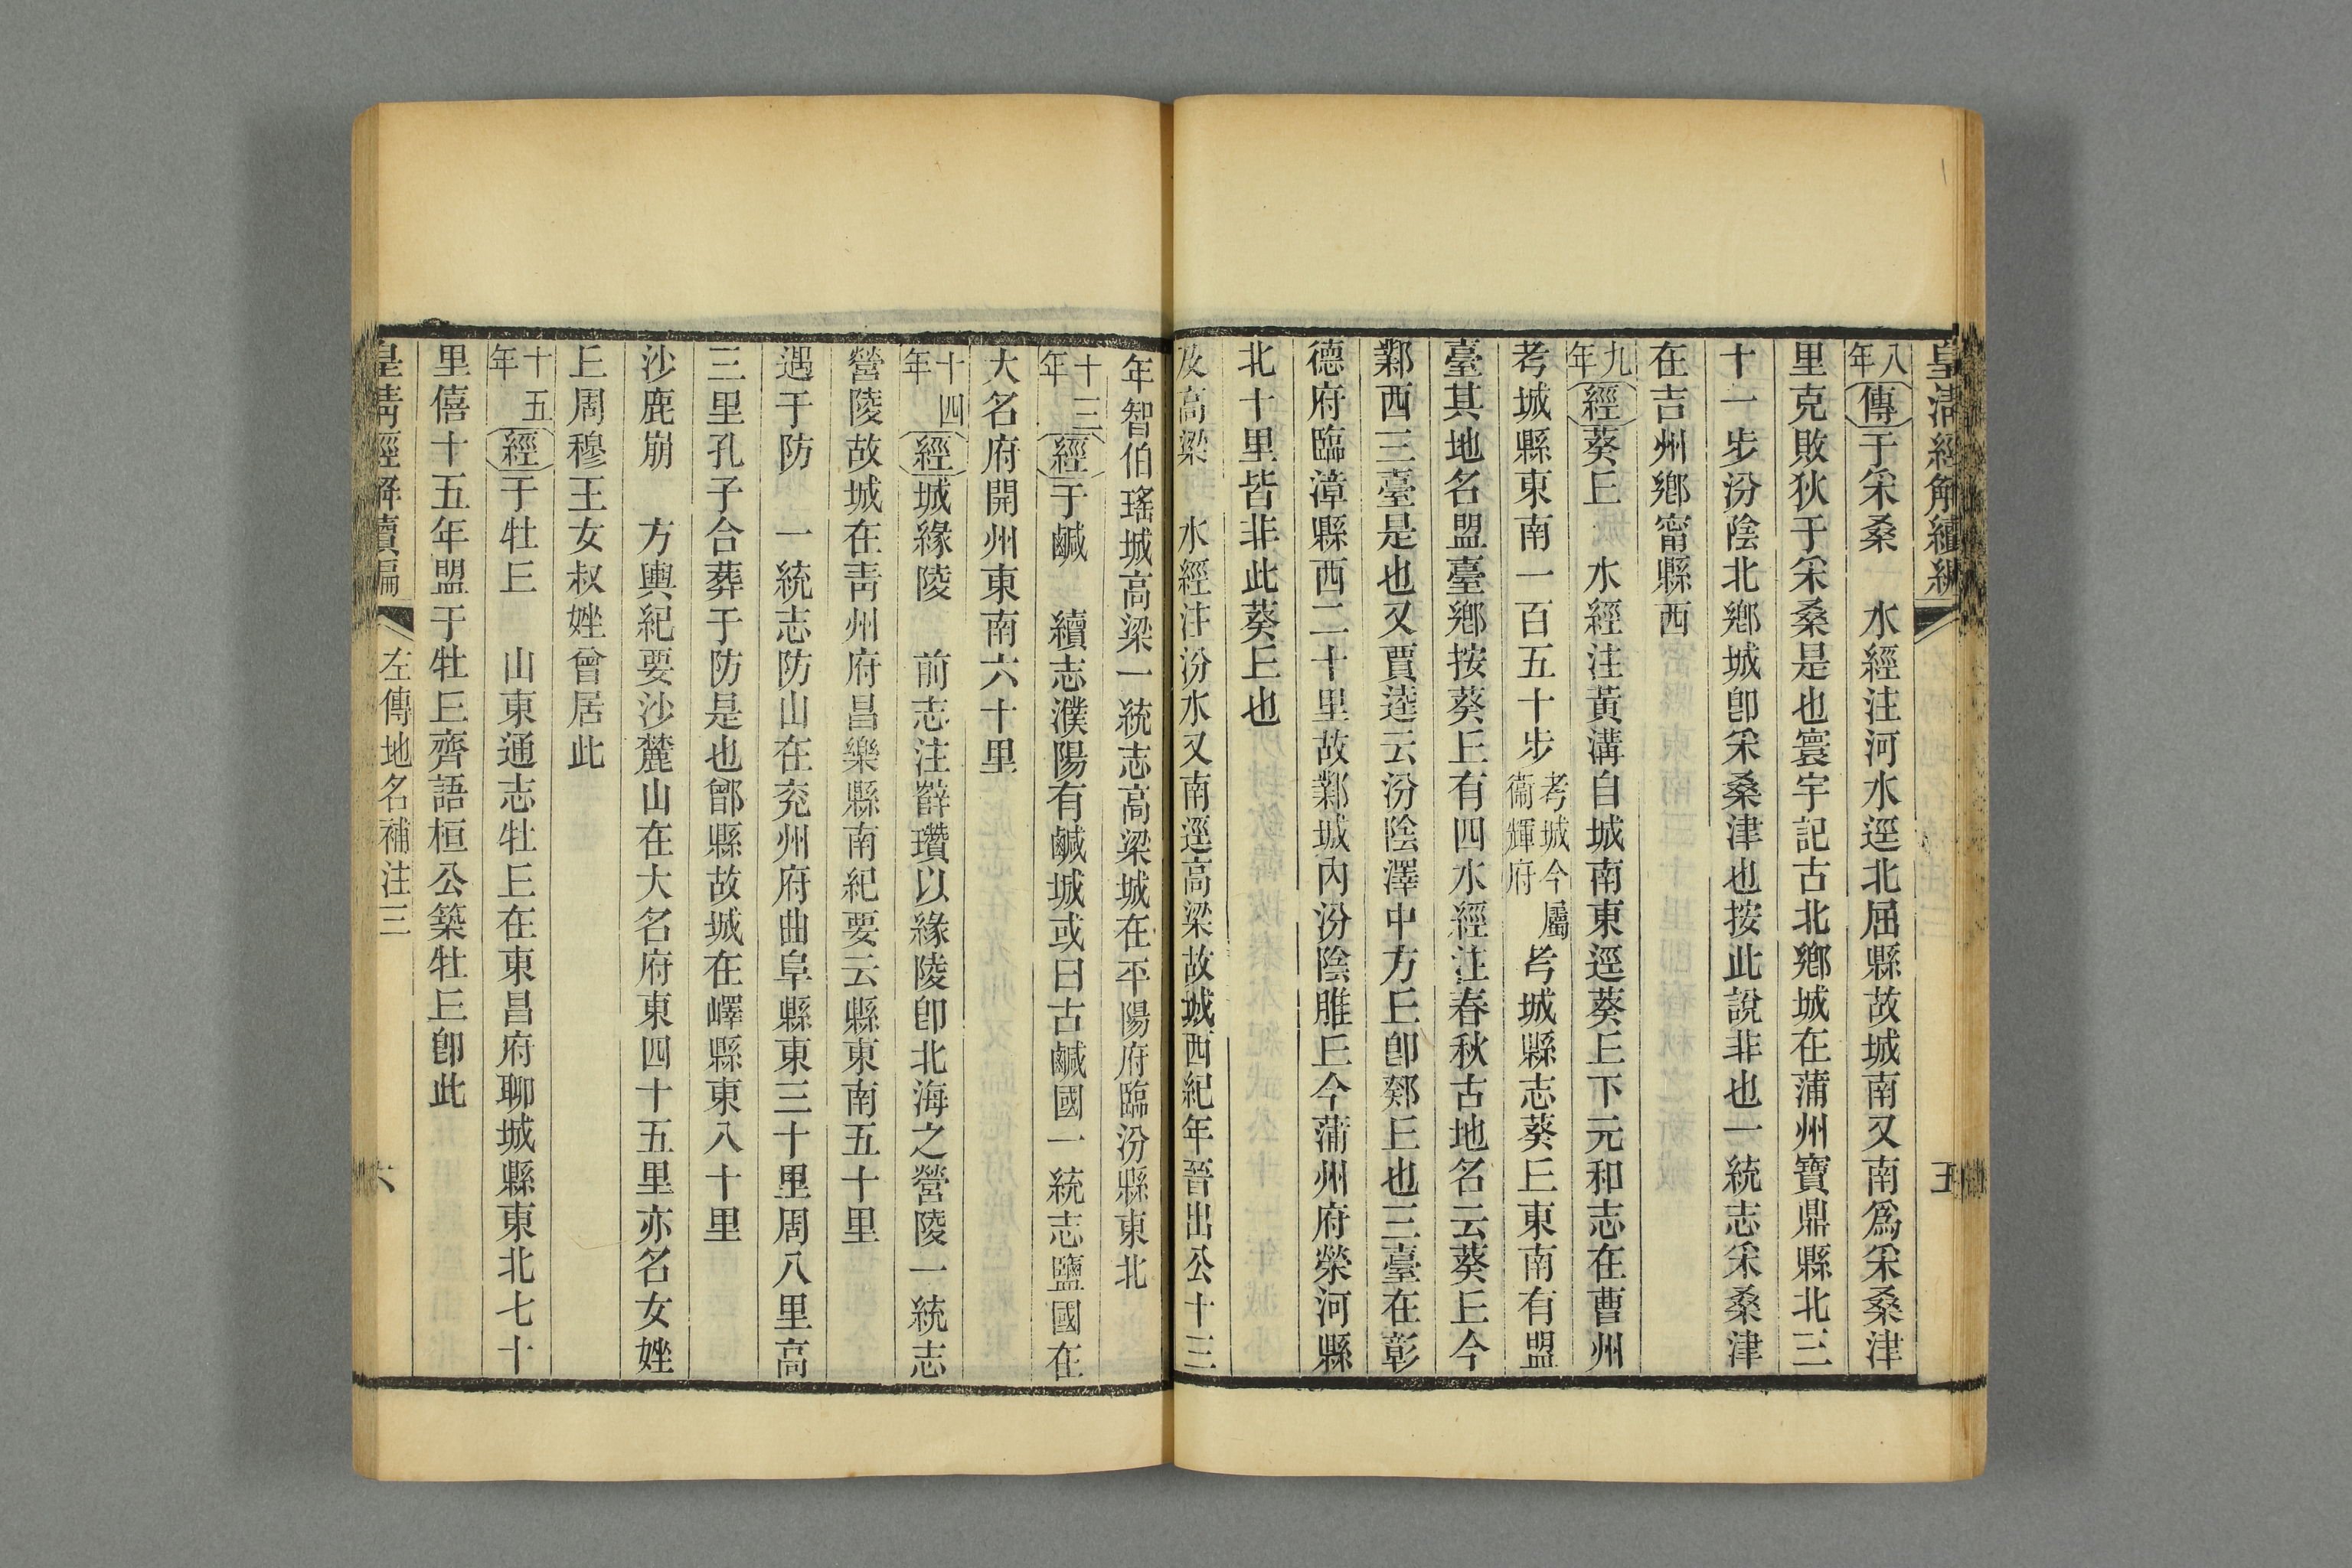 皇清經解續編
五
八年傳于采桑　水經注河水逕北屈縣故城南又南爲采桑津
里克敗狄于采桑是也寰宇記古北鄉城在蒲州寶鼎縣北三
十一步汾陰北鄉城卽采桑津也按此說非也一統志采桑津
在吉州鄉甯縣西
九年經葵丘　水經注黃溝自城南東逕葵丘下元和志在曹州
考城縣東南一百五十步考城今屬衞輝府考城縣志葵丘東南有盟
臺其地名盟臺鄉按葵丘有四水經注春秋古地名云葵丘今
鄴西三臺是也又賈逵云汾陰澤中方丘卽郊丘也三臺在彰
德府臨漳縣西二十里故鄴城內汾陰脽丘今蒲州府榮河縣
北十里皆非此葵丘也
及高梁　水經注汾水又南逕高梁故城西紀年晉出公十三
年智伯瑤城高梁一統志高梁城在平陽府臨汾縣東北
十三年經于鹹　續志濮陽有鹹城或曰古鹹國一統志鹽國在
大名府開州東南六十里
十四年經城緣陵　前志注薛瓚以緣陵卽北海之營陵一統志
營陵故城在靑州府昌樂縣南紀要云縣東南五十里
遇于防　一統志防山在兗州府曲阜縣東三十里周八里高
三里孔子合葬于防是也鄫縣故城在嶧縣東八十里
沙鹿崩　方輿紀要沙麓山在大名府東四十五里亦名女姓
丘周穆王女叔姓曾居此
十五年經于牡丘　山東通志牡丘在東昌府聊城縣東北七十
里僖十五年盟于牡丘齊語桓公築牡丘卽此
皇清經解續編
左傳地名補注三
六